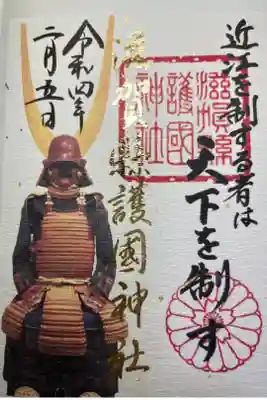 近江を制する者は
天下を制す
滋賀縣
護國
神社
滋賀県護國神社
令和四年
二月五日